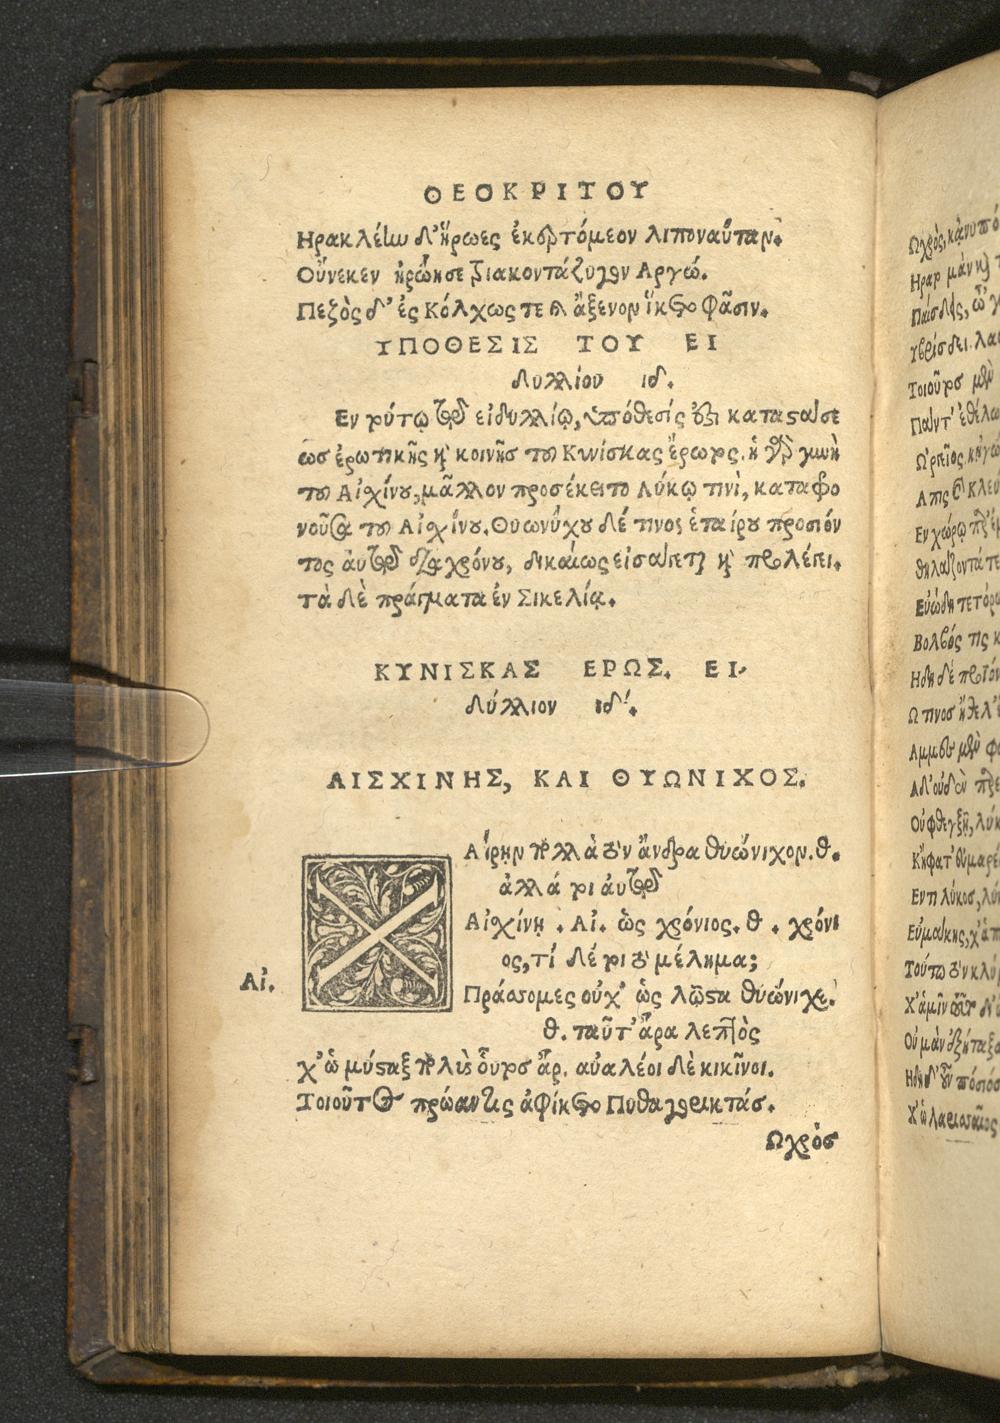 ΘΕΟΚΡΙΤΟΥ
Ηρακλέην δ' ἥρωες ἐκερτόμεον λιποναύταν.
Οὕνεκεν ἠρώησε τριακοντάζυγον Αργώ.
Πεζὸς δ' ἐς Κόλχως τε καὶ ἄξενον ἵκετο Φᾶσιν.
ΥΠΟΘΕΣΙΣ ΤΟΥ ΕΙ
δυλλίου ιδ.
Εν τούτῳ τῷ εἰδυλλίῳ, ὑπόθεσίς ἐστι καταστάσε
ως ἐρωτικῆς καὶ κοινῆς τοῦ Κυνίσκας ἔρωτος. ἡ γὰρ γυνὴ
τοῦ Αἰχίνου, μᾶλλον προσέκειτο Λύκῳ τινὶ, καταφρο
νοῦσα τοῦ Αἰχίνου. Θυωνύχου δέ τινος ἑταίρου προσιόν
τος αὐτῷ διὰ χρόνου, δικαίως εἰσάγεται καὶ προλέγει.
τὰ δὲ πράγματα ἐν Σικελίᾳ.
ΚΥΝΙΣΚΑΣ ΕΡΩΣ. ΕΙ-
δύλλιον ιδ'.
ΑΙΣΧΙΝΗΣ, ΚΑΙ ΘΥΩΝΙΧΟΣ.
Χ Αίρην πολλὰ τὸν ἄνδρα θυώνιχον. θ.
ἀλλά τοι αὐτῷ
Αἰχίνῃ. Αἰ. ὡς χρόνιος. θ. χρόνι
ος, τί δέ τοι τὸ μέλημα;
Αἰ. Πράσσομες οὐχ' ὡς λῷστα θυώνιχε.
θ. ταῦτ' ἄρα λεπτὸς
χ' ὡ μύσταξ πολὺς οὗτος ἄρ. αὐαλέοι δὲ κικῖνοι.
Τοιοῦτος πρώαν τις ἀφίκετο Πυθαγορικτάς.
Ωχρὸς
Ωχρὸς, κἀνυπό
Ηραρ μὰν καὶ τ
Παίσδεις, ὦ' γ
Υβρίσδει. λα
Τοιοῦτος μὲν
Πάντ' ἐθέλω
Ω'ργεῖος κἠγὼ
Απις καὶ Κλεύ
Εν χώρῳ παρ' ἐμ
Θηλάζοντά τε
Εὐώδη τετόρω
Βολβός τις κ
Ηδη δὲ προϊόν
Ω τινος ἤθελ' ἕ
Αμμὲς μὲν φ
Αδ' οὐδὲν παρε
Οὐ φθεγξῇ, λύκ
Κἤφατ' εὐμαρέ
Εντι λύκος, λύκ
Εὐμάκης, χ' ἁπ
Τούτω τὸν κλύμ
Χ' ἁμῖν
Οὐ μὰν ἐξήταξα
Ηδη δ' ὦν πόσιός
Χ' ὡ λαρισσαῖος